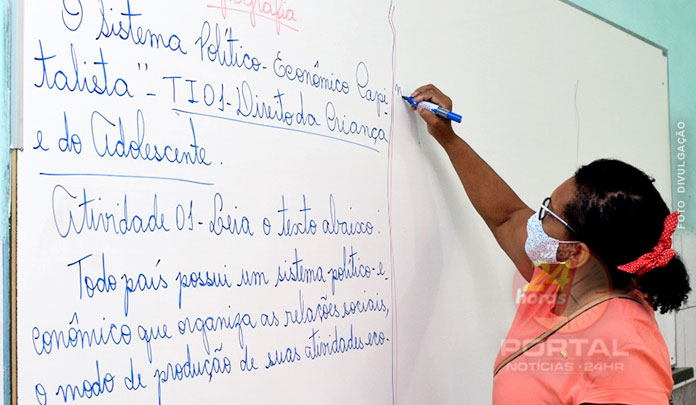 Geografia
O Sistema Político-Econômico Capi
talista" - TI01 - Direito da Criança
e do Adolescente.
Atividade 01 - Leia o texto abaixo:
Todo país possui um sistema político-e
conômico que organiza as relações sociais,
o modo de produção de suas atividades eco-
FOTO DIVULGAÇÃO
24
horas
PORTAL
NOTÍCIAS · 24HR